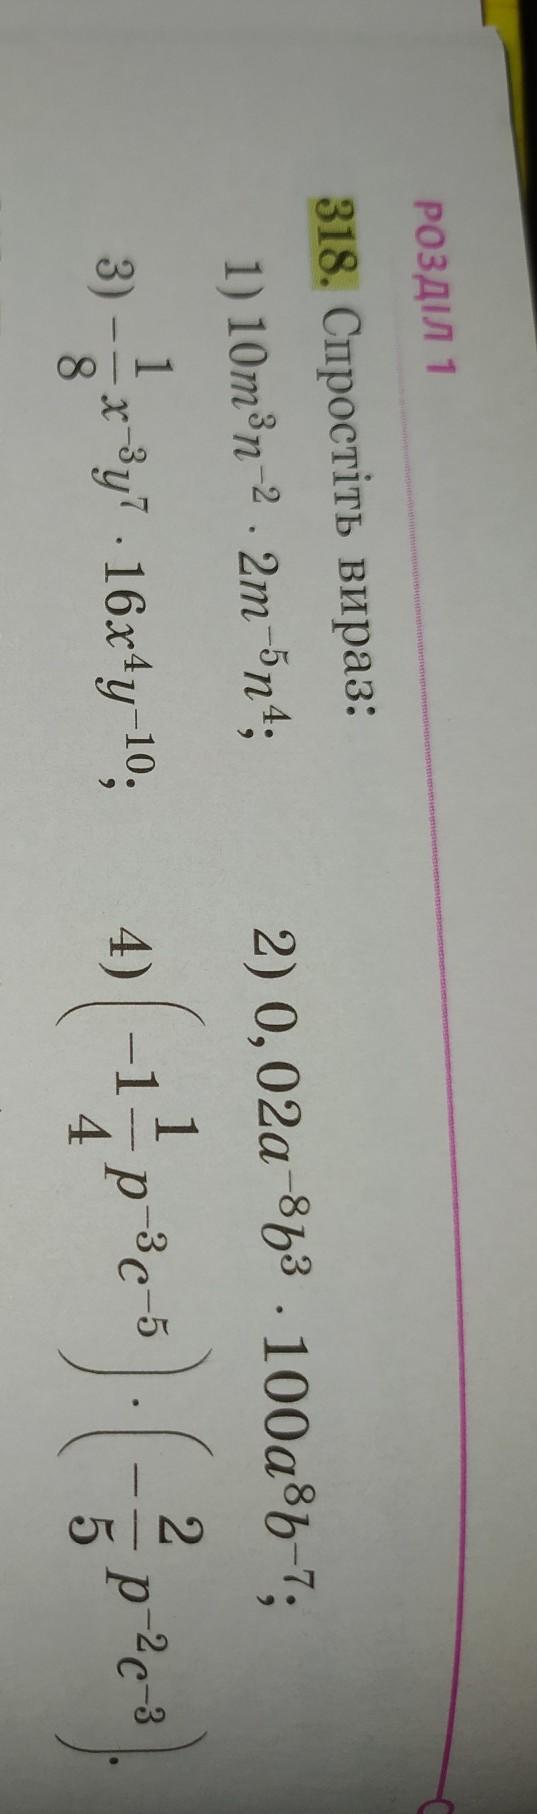 РОЗДІЛ 1
318. Спростіть вираз:
1) 10m³n⁻² · 2m⁻⁵n⁴; 2) 0,02a⁻⁸b³ · 100a⁸b⁻⁷;
3) −1/8 x⁻³y⁷ · 16x⁴y⁻¹⁰; 4) (−1 1/4 p⁻³c⁻⁵) · (−2/5 p⁻²c⁻³).